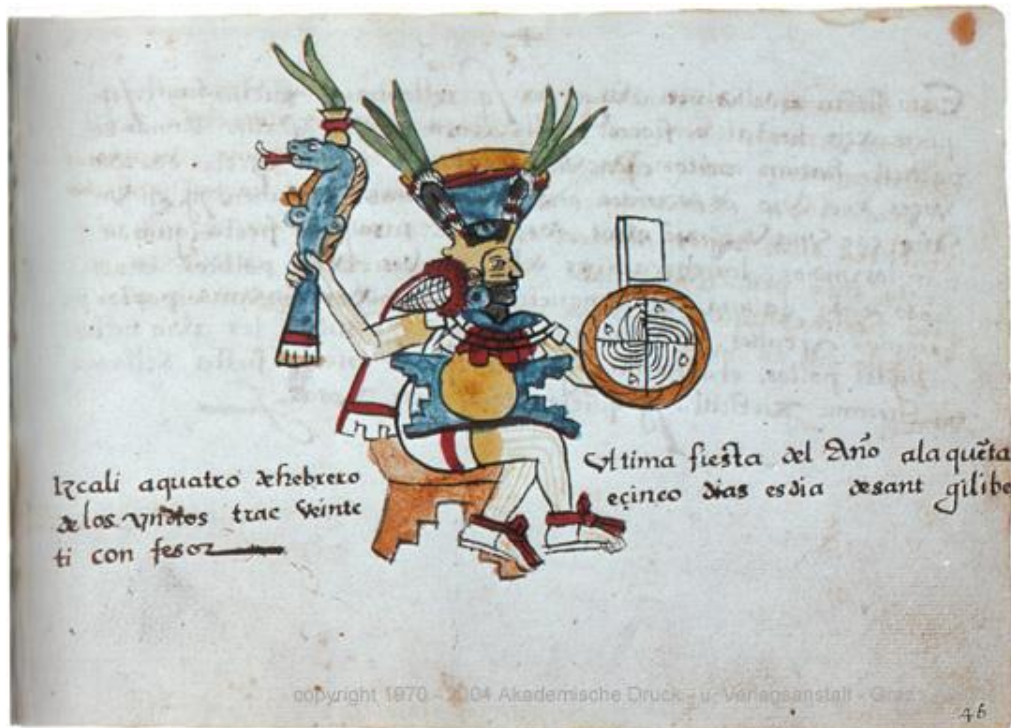 Izcali aquatro dehebrero
delos yndios trae veinte
ti con fesor
Vltima fiesta del Año ala quēta
eçinco dias es dia desant gilibe
copyright 1970 - 2004 Akademische Druck - u. Verlagsanstalt - Graz
46